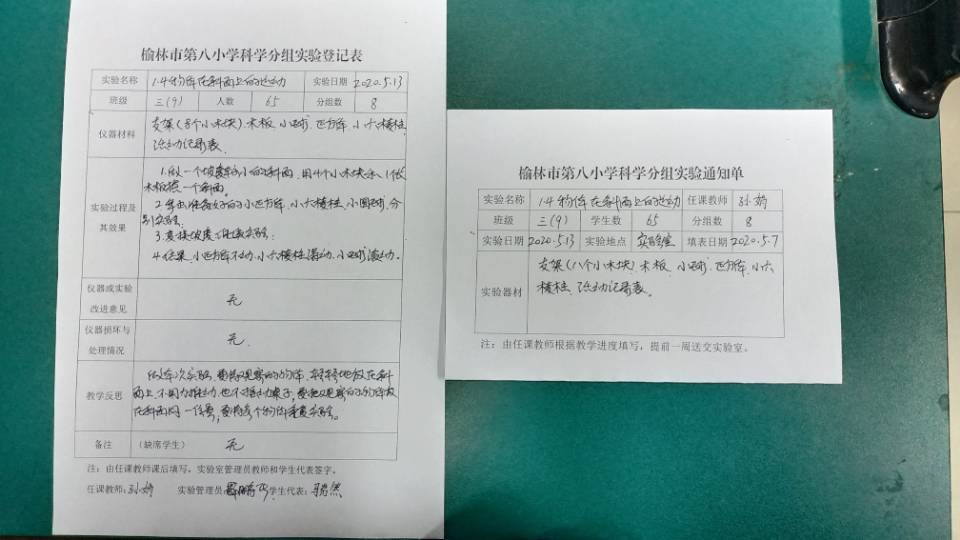 榆林市第八小学科学分组实验登记表
实验名称 1.4物体在斜面上的运动 实验日期 2020.5.13
班级 三(9) 人数 65 分组数 8
仪器材料 支架(8个小木块)、木板、小球、正方体、小六棱柱、
活动记录表。
实验过程及其效果
1.做一个坡度较小的斜面，用4个小木块和1张
木板搭一个斜面。
2.拿出准备好的小正方体、小六棱柱、小圆球，分
别实验。
3.实验
4.结果：小正方体不动，小六棱柱滑动，小球滚动。
仪器或实验
改进意见 无
仪器损坏与
处理情况 无
教学反思
做这次实验，要将观察的物体，轻轻地放在斜
面上，不用力推动，也不摇动桌子，要把观察的物体放
在斜面同一位置，要将每个物体重复实验。
备注 （缺席学生） 无
注：由任课教师课后填写，实验室管理员教师和学生代表签字。
任课教师：孙婷 实验管理员 学生代表：
榆林市第八小学科学分组实验通知单
实验名称 1.4物体在斜面上的运动 任课教师 孙婷
班级 三(9) 学生数 65 分组数 8
实验日期 2020.5.13 实验地点 实验室 填表日期 2020.5.7
实验器材 支架(八个小木块)、木板、小球、正方体、小六
棱柱、活动记录表。
注：由任课教师根据教学进度填写，提前一周送交实验室。